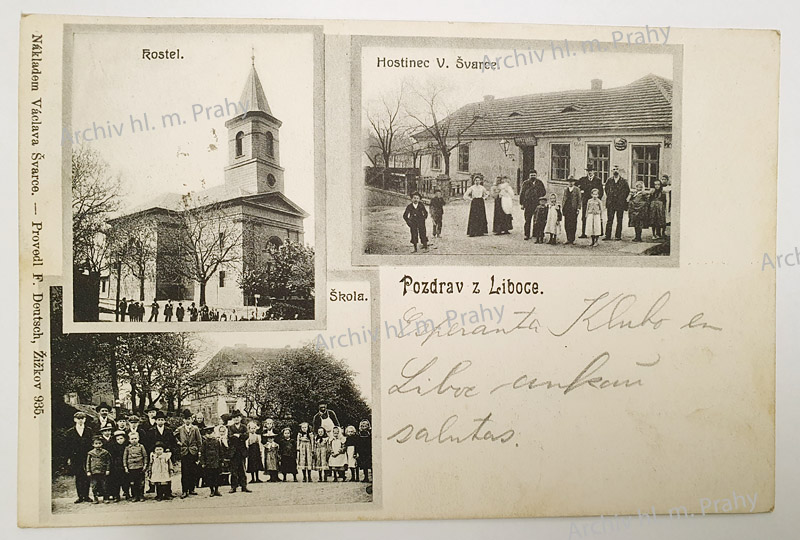 Nákladem Václava Švarce. — Provedl F. Deutsch, Žižkov 935.
Kostel.
Hostinec V. Švarce.
Škola.
Pozdrav z Liboce.
Esperanta Klubo en
Liboc ankaŭ
salutas.
Archiv hl. m. Prahy
Archiv hl. m. Prahy
Archiv hl. m. Prahy
Archiv hl. m. Prahy